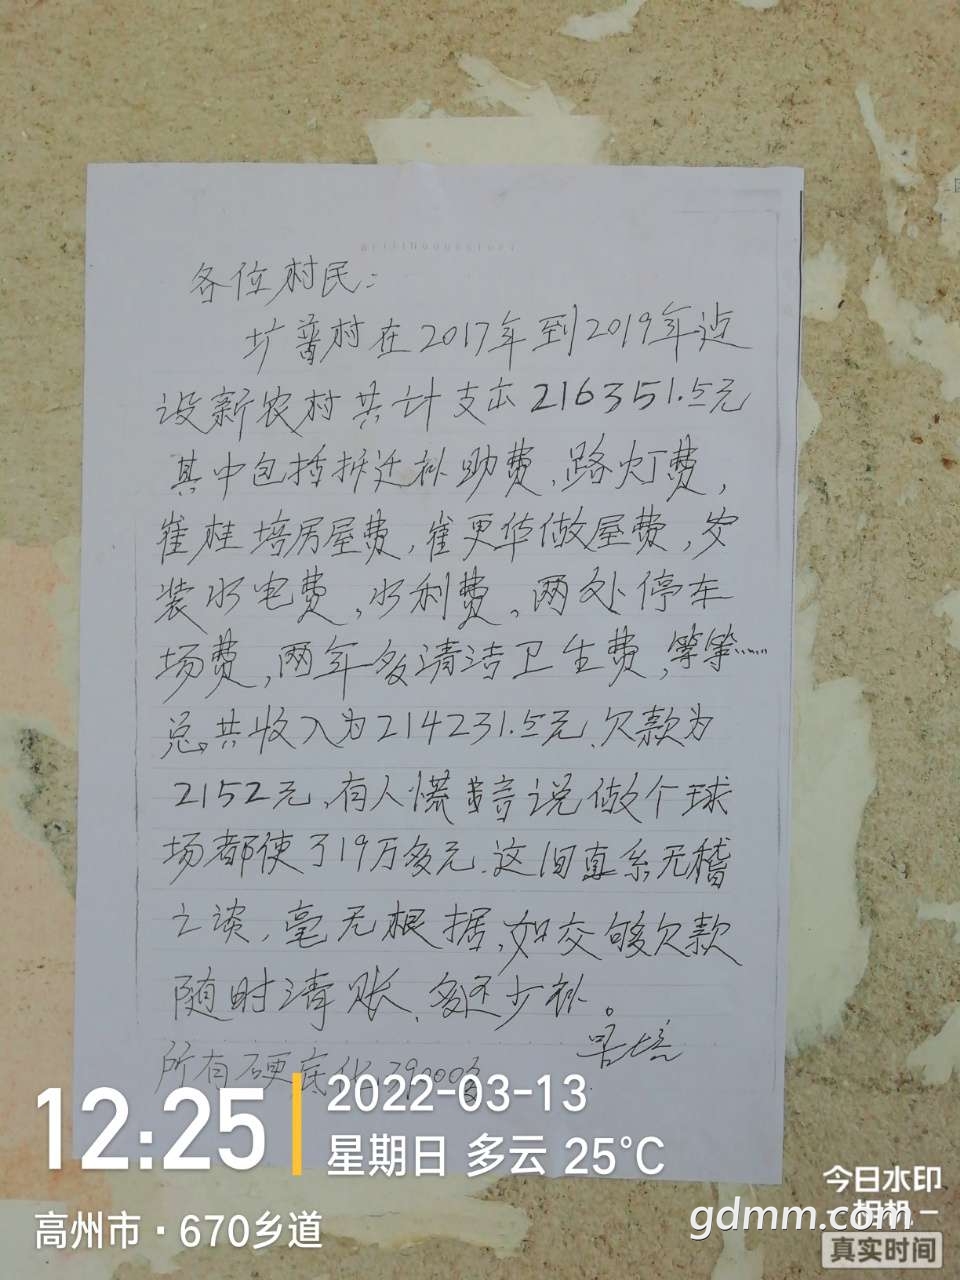 各位村民:
圹普村在2017年到2019年边
设新农村共计支出216351.5元
其中包括拆迁补助费,路灯费,
崔桂培房屋费,崔更华做屋费,安
装水电费,水利费,两处停车
场费,两年多清洁卫生费,等等……
总共收入为214231.5元、欠款为
2152元,有人慌 说做个球
场都使了19万多元.这旧真系无稽
之谈,毫无根据,如交够欠款
随时清账、多还少补。
所有硬底化
12:25
2022-03-13
星期日 多云 25°C
高州市·670乡道
今日水印
相机
gdmm.com
真实时间